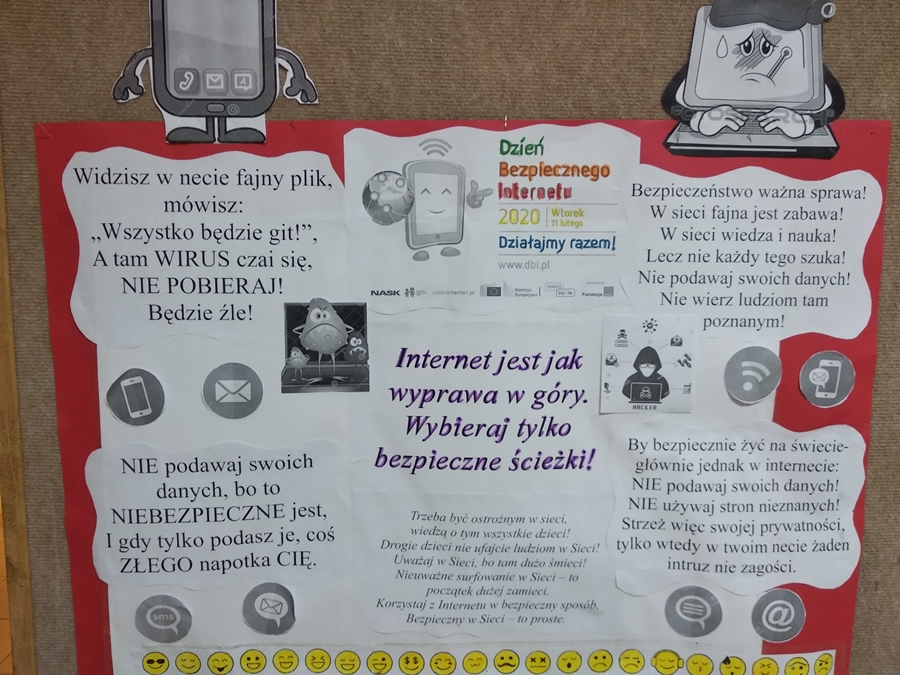 Widzisz w necie fajny plik,
mówisz:
„Wszystko będzie git!”,
A tam WIRUS czai się,
NIE POBIERAJ!
Będzie źle!
Dzień
Bezpiecznego
Internetu
2020
Wtorek
11 lutego
Działajmy razem!
www.dbi.pl
NASK
saferinternet.pl
Komisja
Europejska
Fundacja
Bezpieczeństwo ważna sprawa!
W sieci fajna jest zabawa!
W sieci wiedza i nauka!
Lecz nie każdy tego szuka!
Nie podawaj swoich danych!
Nie wierz ludziom tam
poznanym!
Internet jest jak
wyprawa w góry.
Wybieraj tylko
bezpieczne ścieżki!
HACKER
NIE podawaj swoich
danych, bo to
NIEBEZPIECZNE jest,
I gdy tylko podasz je, coś
ZŁEGO napotka CIĘ.
Trzeba być ostrożnym w sieci,
wiedzą o tym wszystkie dzieci!
Drogie dzieci nie ufajcie ludziom w Sieci!
Uważaj w Sieci, bo tam dużo śmieci!
Nieuważne surfowanie w Sieci – to
początek dużej zamieci.
Korzystaj z Internetu w bezpieczny sposób.
Bezpieczny w Sieci – to proste.
By bezpiecznie żyć na świecie-
głównie jednak w internecie:
NIE podawaj swoich danych!
NIE używaj stron nieznanych!
Strzeż więc swojej prywatności,
tylko wtedy w twoim necie żaden
intruz nie zagości.
sms
@